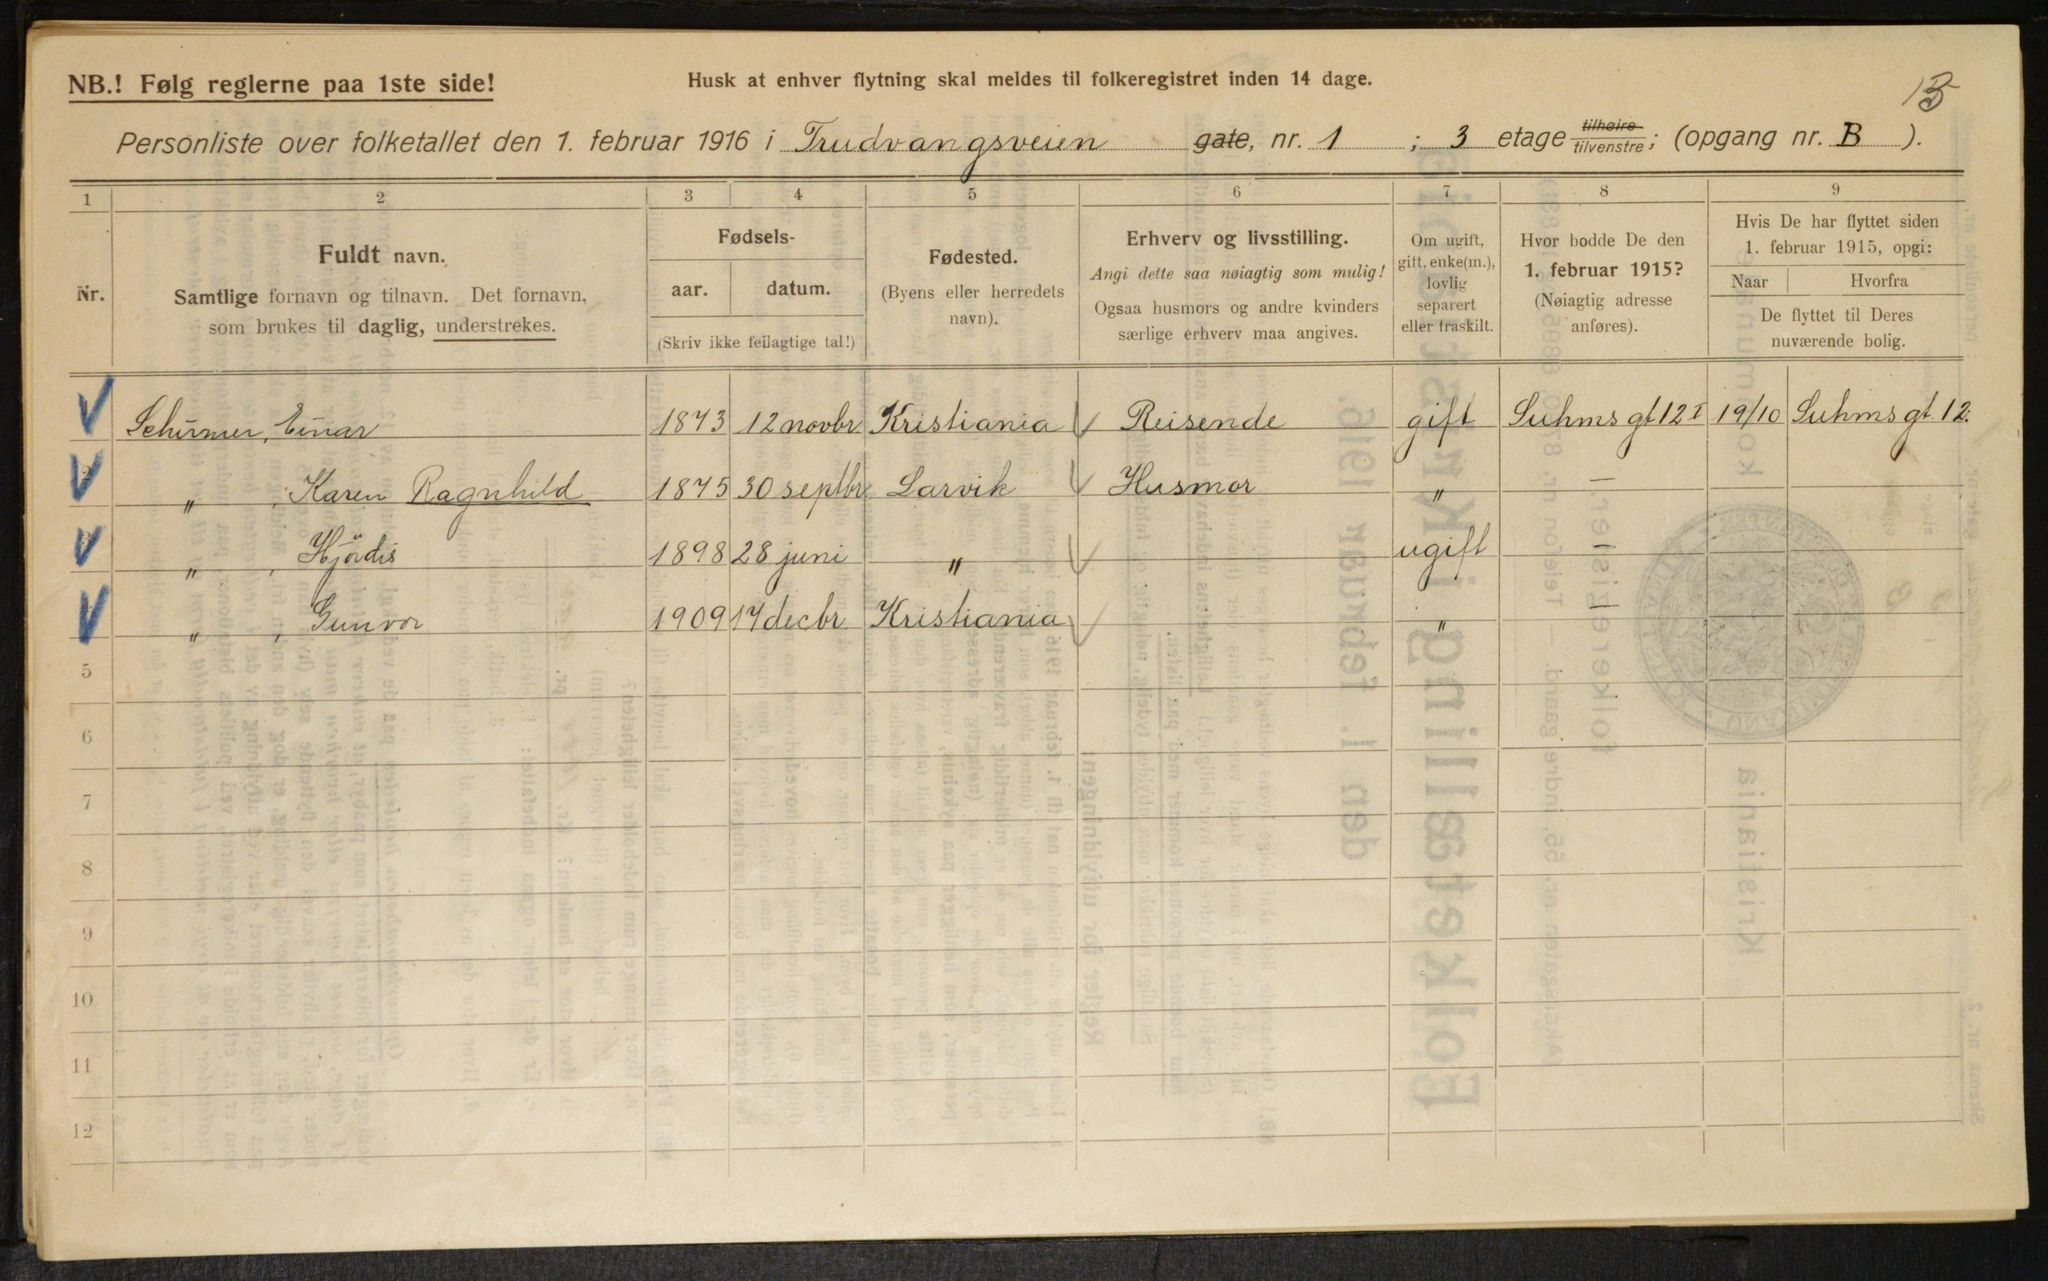 NB.! Følg reglerne paa 1ste side!
Husk at enhver flytning skal meldes til folkeregistret inden 14 dage.
Personliste over folketallet den 1. februar 1916 i Trudvangsveien gate, nr. 1 ; 3 etage tilhøire tilvenstre; (opgang nr. B ).
1 2 3 4 5 6 7 8 9
Nr.
Fuldt navn.
Samtlige fornavn og tilnavn. Det fornavn,
som brukes til daglig, understrekes.
Fødsels-
aar. datum.
(Skriv ikke feilagtige tal!)
Fødested.
(Byens eller herredets
navn).
Erhverv og livsstilling.
Angi dette saa nøiagtig som mulig!
Ogsaa husmors og andre kvinders
særlige erhverv maa angives.
Om ugift,
gift, enke(m.),
lovlig
separert
eller fraskilt.
Hvor bodde De den
1. februar 1915?
(Nøiagtig adresse
anføres).
Hvis De har flyttet siden
1. februar 1915, opgi:
Naar Hvorfra
De flyttet til Deres
nuværende bolig.
Schirmer, Einar 1873 12 novbr Kristiania Reisende gift Suhms gt 12 I 19/10 Suhms gt. 12.
" , Karen Ragnhild 1875 30 septbr Larvik Husmor " —
" , Hjördis 1898 28 juni " ugift —
" , Gunvor 1909 17 decbr Kristiania " —
5
6
7
8
9
10
11
12